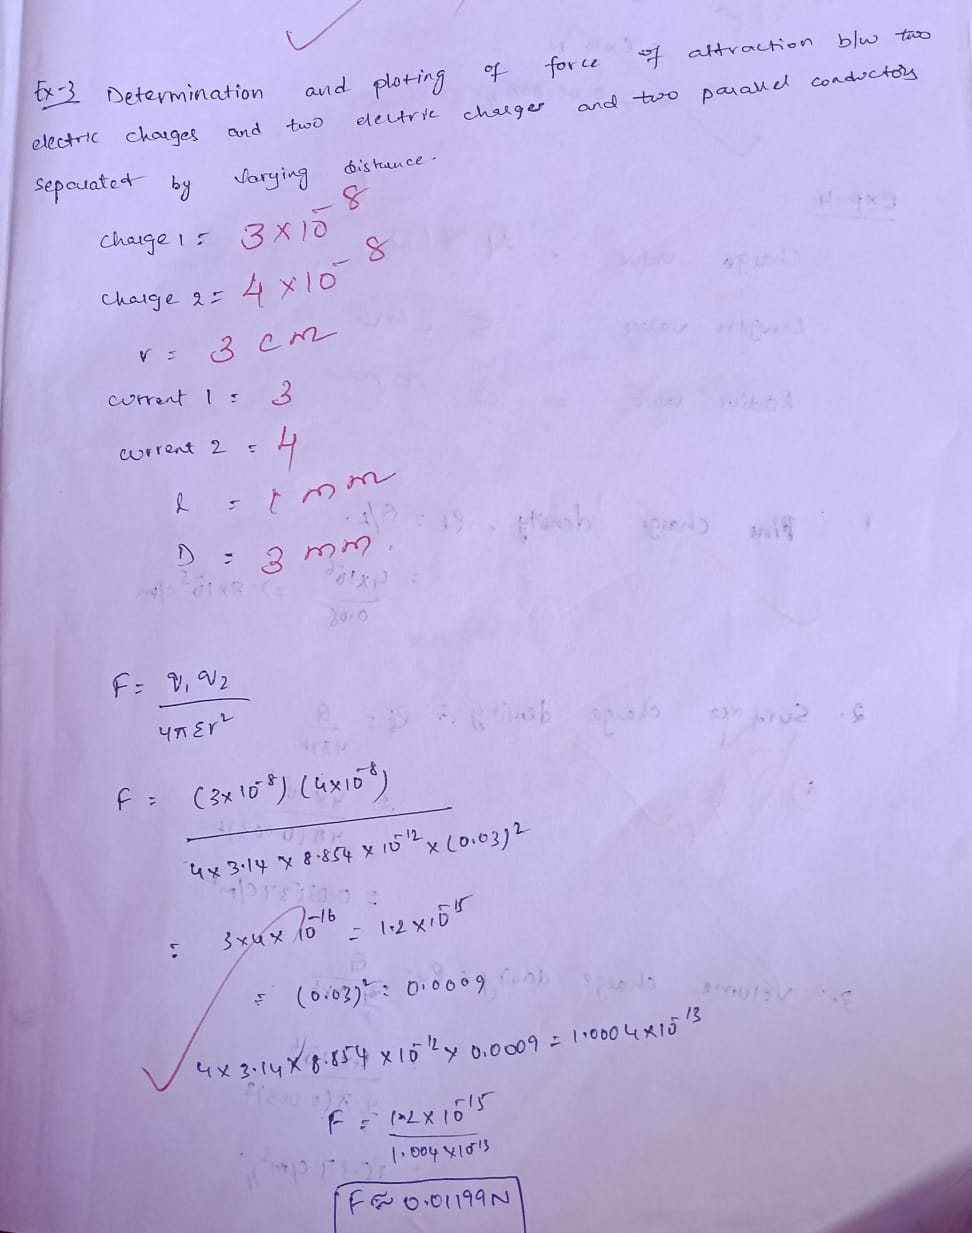 Ex-3 Determination and ploting of force of attraction b/w two
electric charges and two electric charges and two parallel conductors
separated by varying distance.
charge 1 = 3 × 10⁻⁸
charge 2 = 4 × 10⁻⁸
r = 3 cm
current 1 = 3
current 2 = 4
l = 1 mm
D = 3 mm.
F = q₁ q₂ / 4π εr²
F = (3×10⁻⁸) (4×10⁻⁸) / 4×3.14 × 8.854 × 10⁻¹² × (0.03)²
= 3×4× 10⁻¹⁶ = 1.2 × 10⁻¹⁵
= (0.03)² = 0.0009
4×3.14×8.854 ×10⁻¹² × 0.0009 = 1.0004×10⁻¹³
F = 1.2 × 10⁻¹⁵ / 1.004 ×10⁻¹³
F ≈ 0.01199N